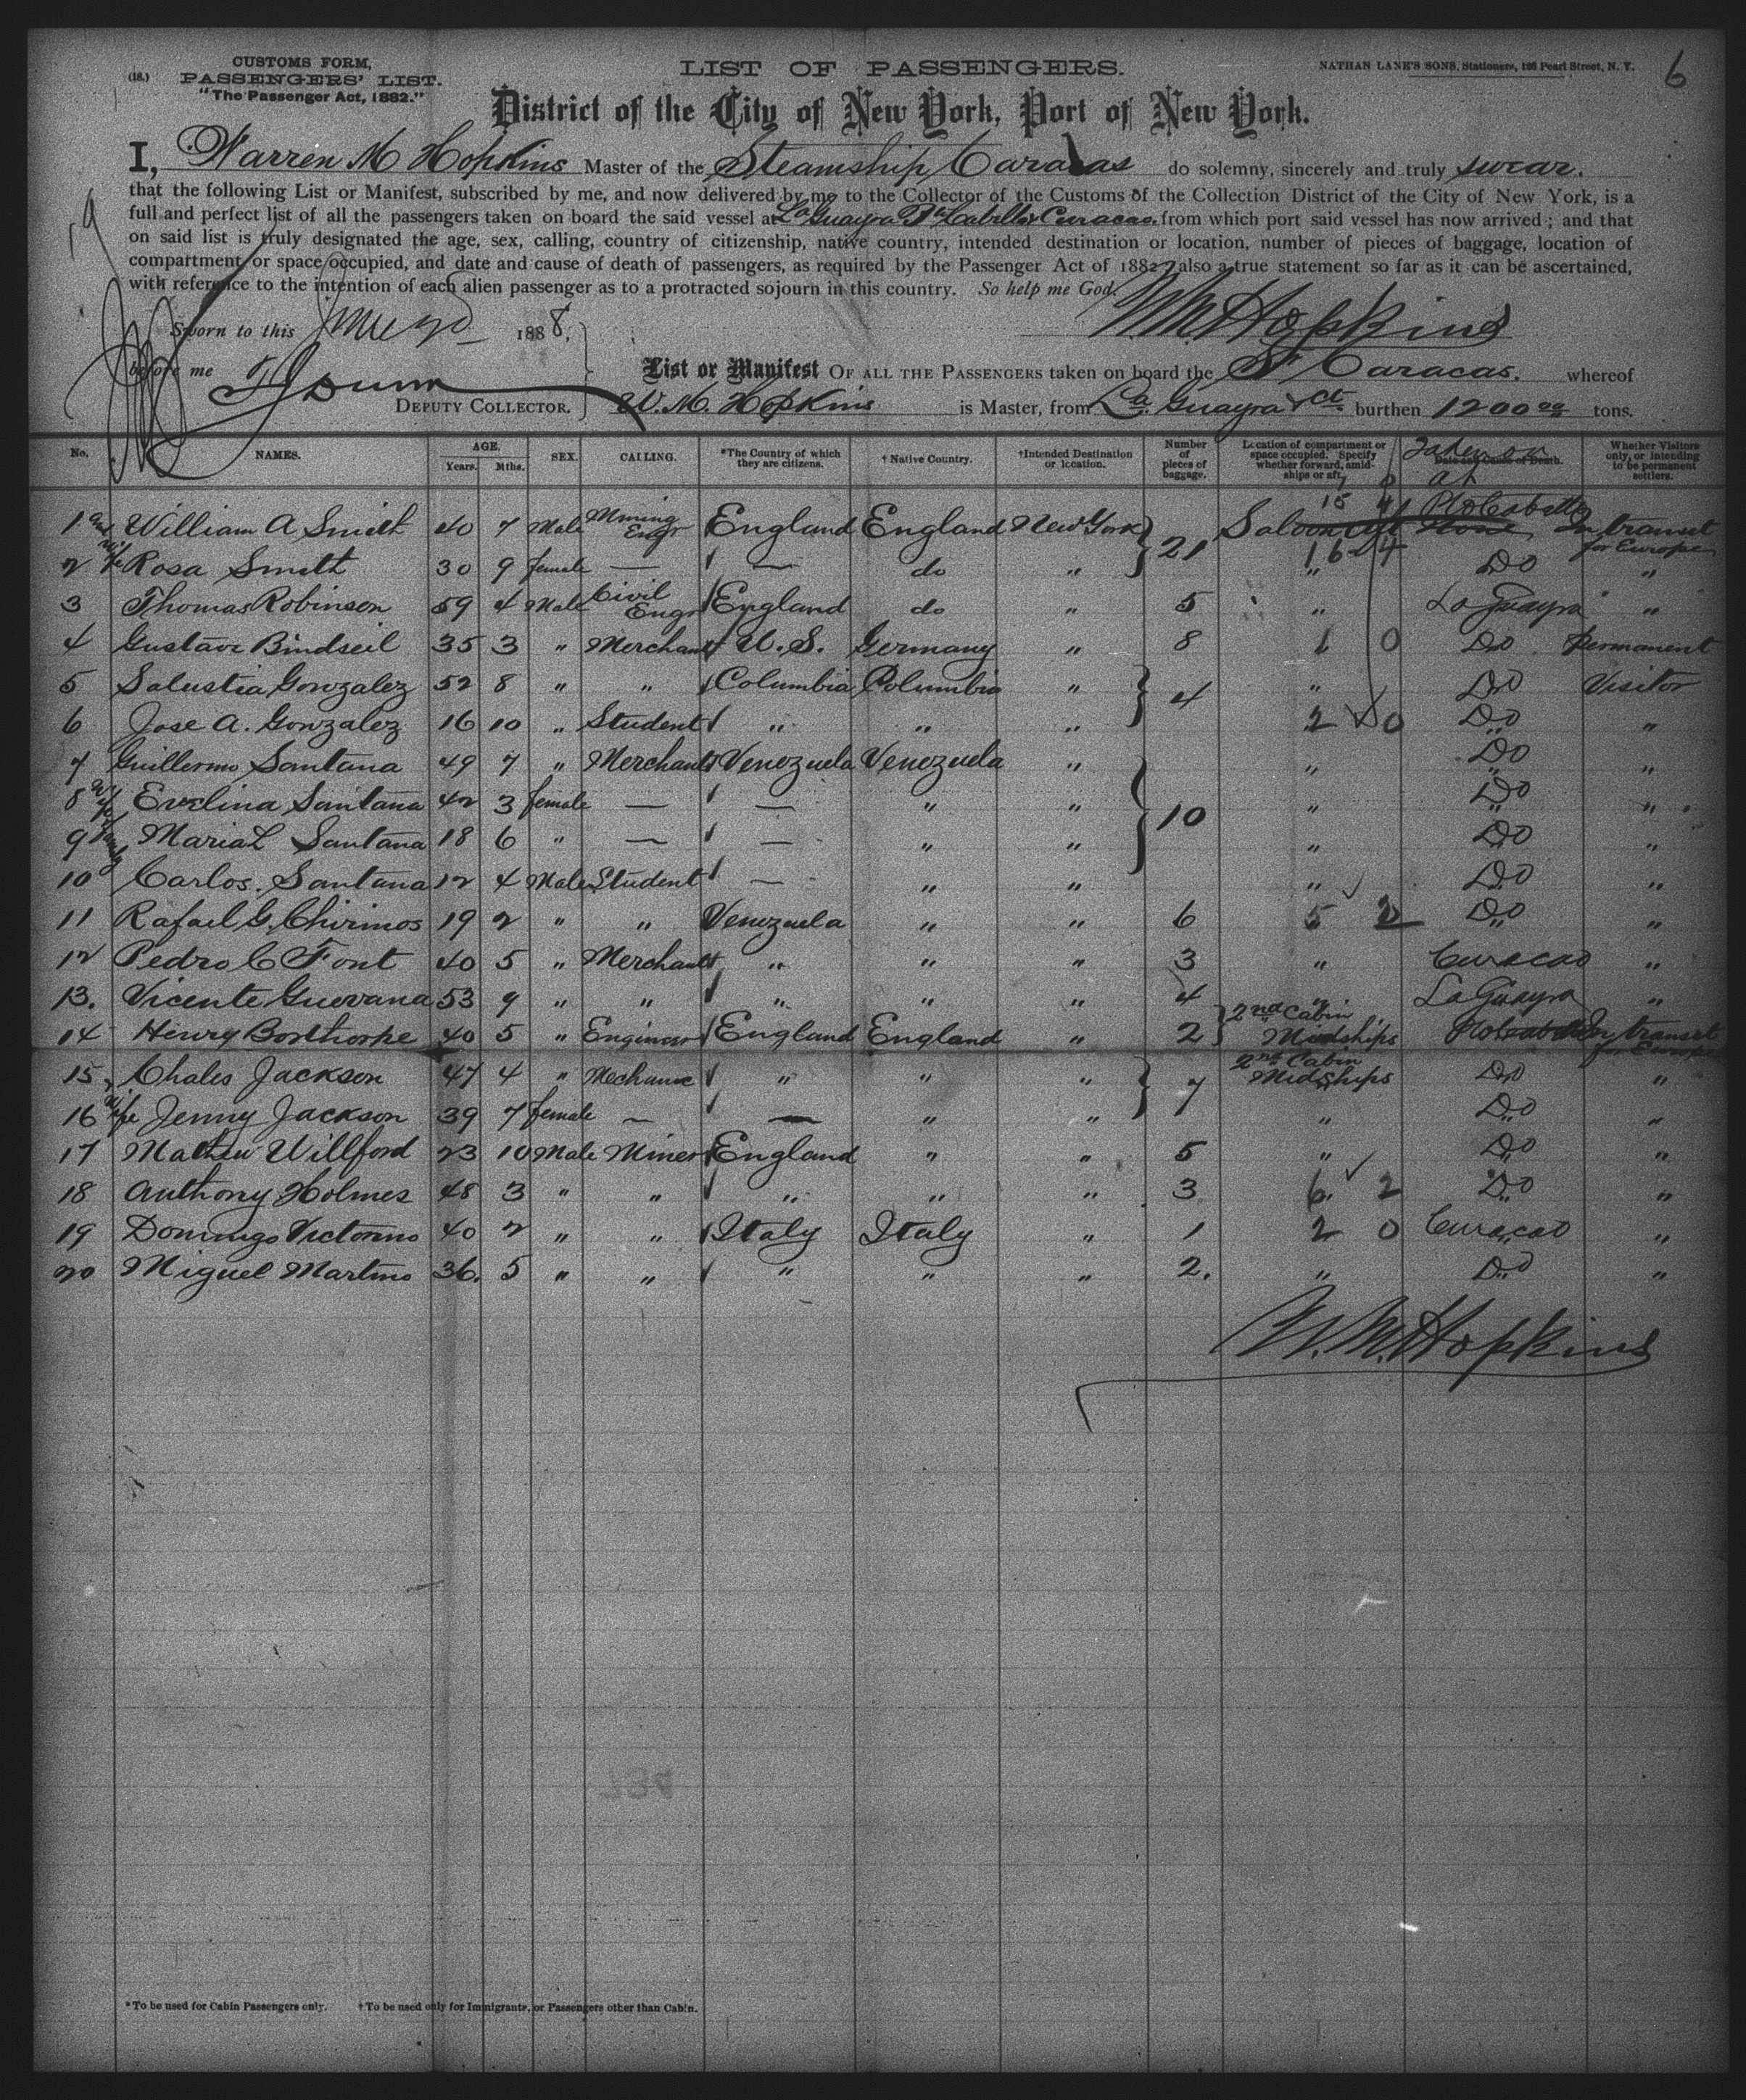 CUSTOMS FORM,
(18.) PASSENGERS' LIST.
"The Passenger Act, 1882."
LIST OF PASSENGERS.
NATHAN LANE'S SONS, Stationers, 126 Pearl Street, N. Y.
6
District of the City of New York, Port of New York.
I, Warren M Hopkins Master of the Steamship Caracas do solemny, sincerely and truly swear.
that the following List or Manifest, subscribed by me, and now delivered by me to the Collector of the Customs of the Collection District of the City of New York, is a
full and perfect list of all the passengers taken on board the said vessel at La Guayra Pto Cabello & Curacao. from which port said vessel has now arrived; and that
on said list is truly designated the age, sex, calling, country of citizenship, native country, intended destination or location, number of pieces of baggage, location of
compartment or space occupied, and date and cause of death of passengers, as required by the Passenger Act of 1882; also a true statement so far as it can be ascertained,
with reference to the intention of each alien passenger as to a protracted sojourn in this country. So help me God.
W. M. Hopkins
Sworn to this June 1888,
before me
DEPUTY COLLECTOR.
List or Manifest OF ALL THE PASSENGERS taken on board the SS Caracas. whereof
W. M. Hopkins is Master, from La Guayra &ct. burthen 1200 tons.
No. NAMES. AGE. Years. Mths. SEX. CALLING. *The Country of which they are citizens. †Native Country. †Intended Destination or location. Number of pieces of baggage. Location of compartment or space occupied. Specify whether forward, amidships or aft. Date and Cause of Death. Taken on at Whether Visitors only, or intending to be permanent settlers.
15 4
1 and William A Smith 40 7 Male Mining Engr England England New York 21 Saloon Aft None Pto Cabello In transit for Europe
16 4
2 wife Rosa Smith 30 9 female — — do " " Do "
3 Thomas Robinson 59 4 Male Civil Engr England do " 5 " La Guayra "
4 Gustave Bindseil 35 3 " Merchant U. S. Germany " 8 1 0 Do Permanent
5 Salustia Gonzalez 52 8 " " Columbia Columbia " 4 " Do Visitor
6 Jose A. Gonzalez 16 10 " Student " " " 2 0 Do "
7 Guillermo Santana 49 7 " Merchant Venezuela Venezuela " " Do "
8 wife Evelina Santana 42 3 female — — " " 10 " Do "
9 Maria L Santana 18 6 " — — " " " Do "
10 Carlos. Santana 12 4 Male Student — " " " Do "
11 Rafael G. Chirinos 19 2 " " Venezuela " " 6 5 2 Do "
12 Pedro C Font 40 5 " Merchant " " " 3 " Curacao "
13. Vicente Guevana 53 9 " " " " " 4 " La Guayra "
14 Henry Bosthorpe 40 5 " Engineer England England " 2 2nd Cabin Midships Pto Cabello In transit for Europe
15 Chales Jackson 47 4 " Mechanic " " " 7 2nd Cabin Midships Do "
16 wife Jenny Jackson 39 7 female — — " " " Do "
17 Mathew Willford 23 10 Male Miner England " " 5 " Do "
18 Anthony Holmes 48 3 " " " " " 3 6 2 Do "
19 Domingo Victorino 40 2 " " Italy Italy " 1 2 0 Curacao "
20 Miguel Martino 36. 5 " " " " " 2. " Do "
W. M. Hopkins
*To be used for Cabin Passengers only. †To be used only for Immigrants, or Passengers other than Cabin.